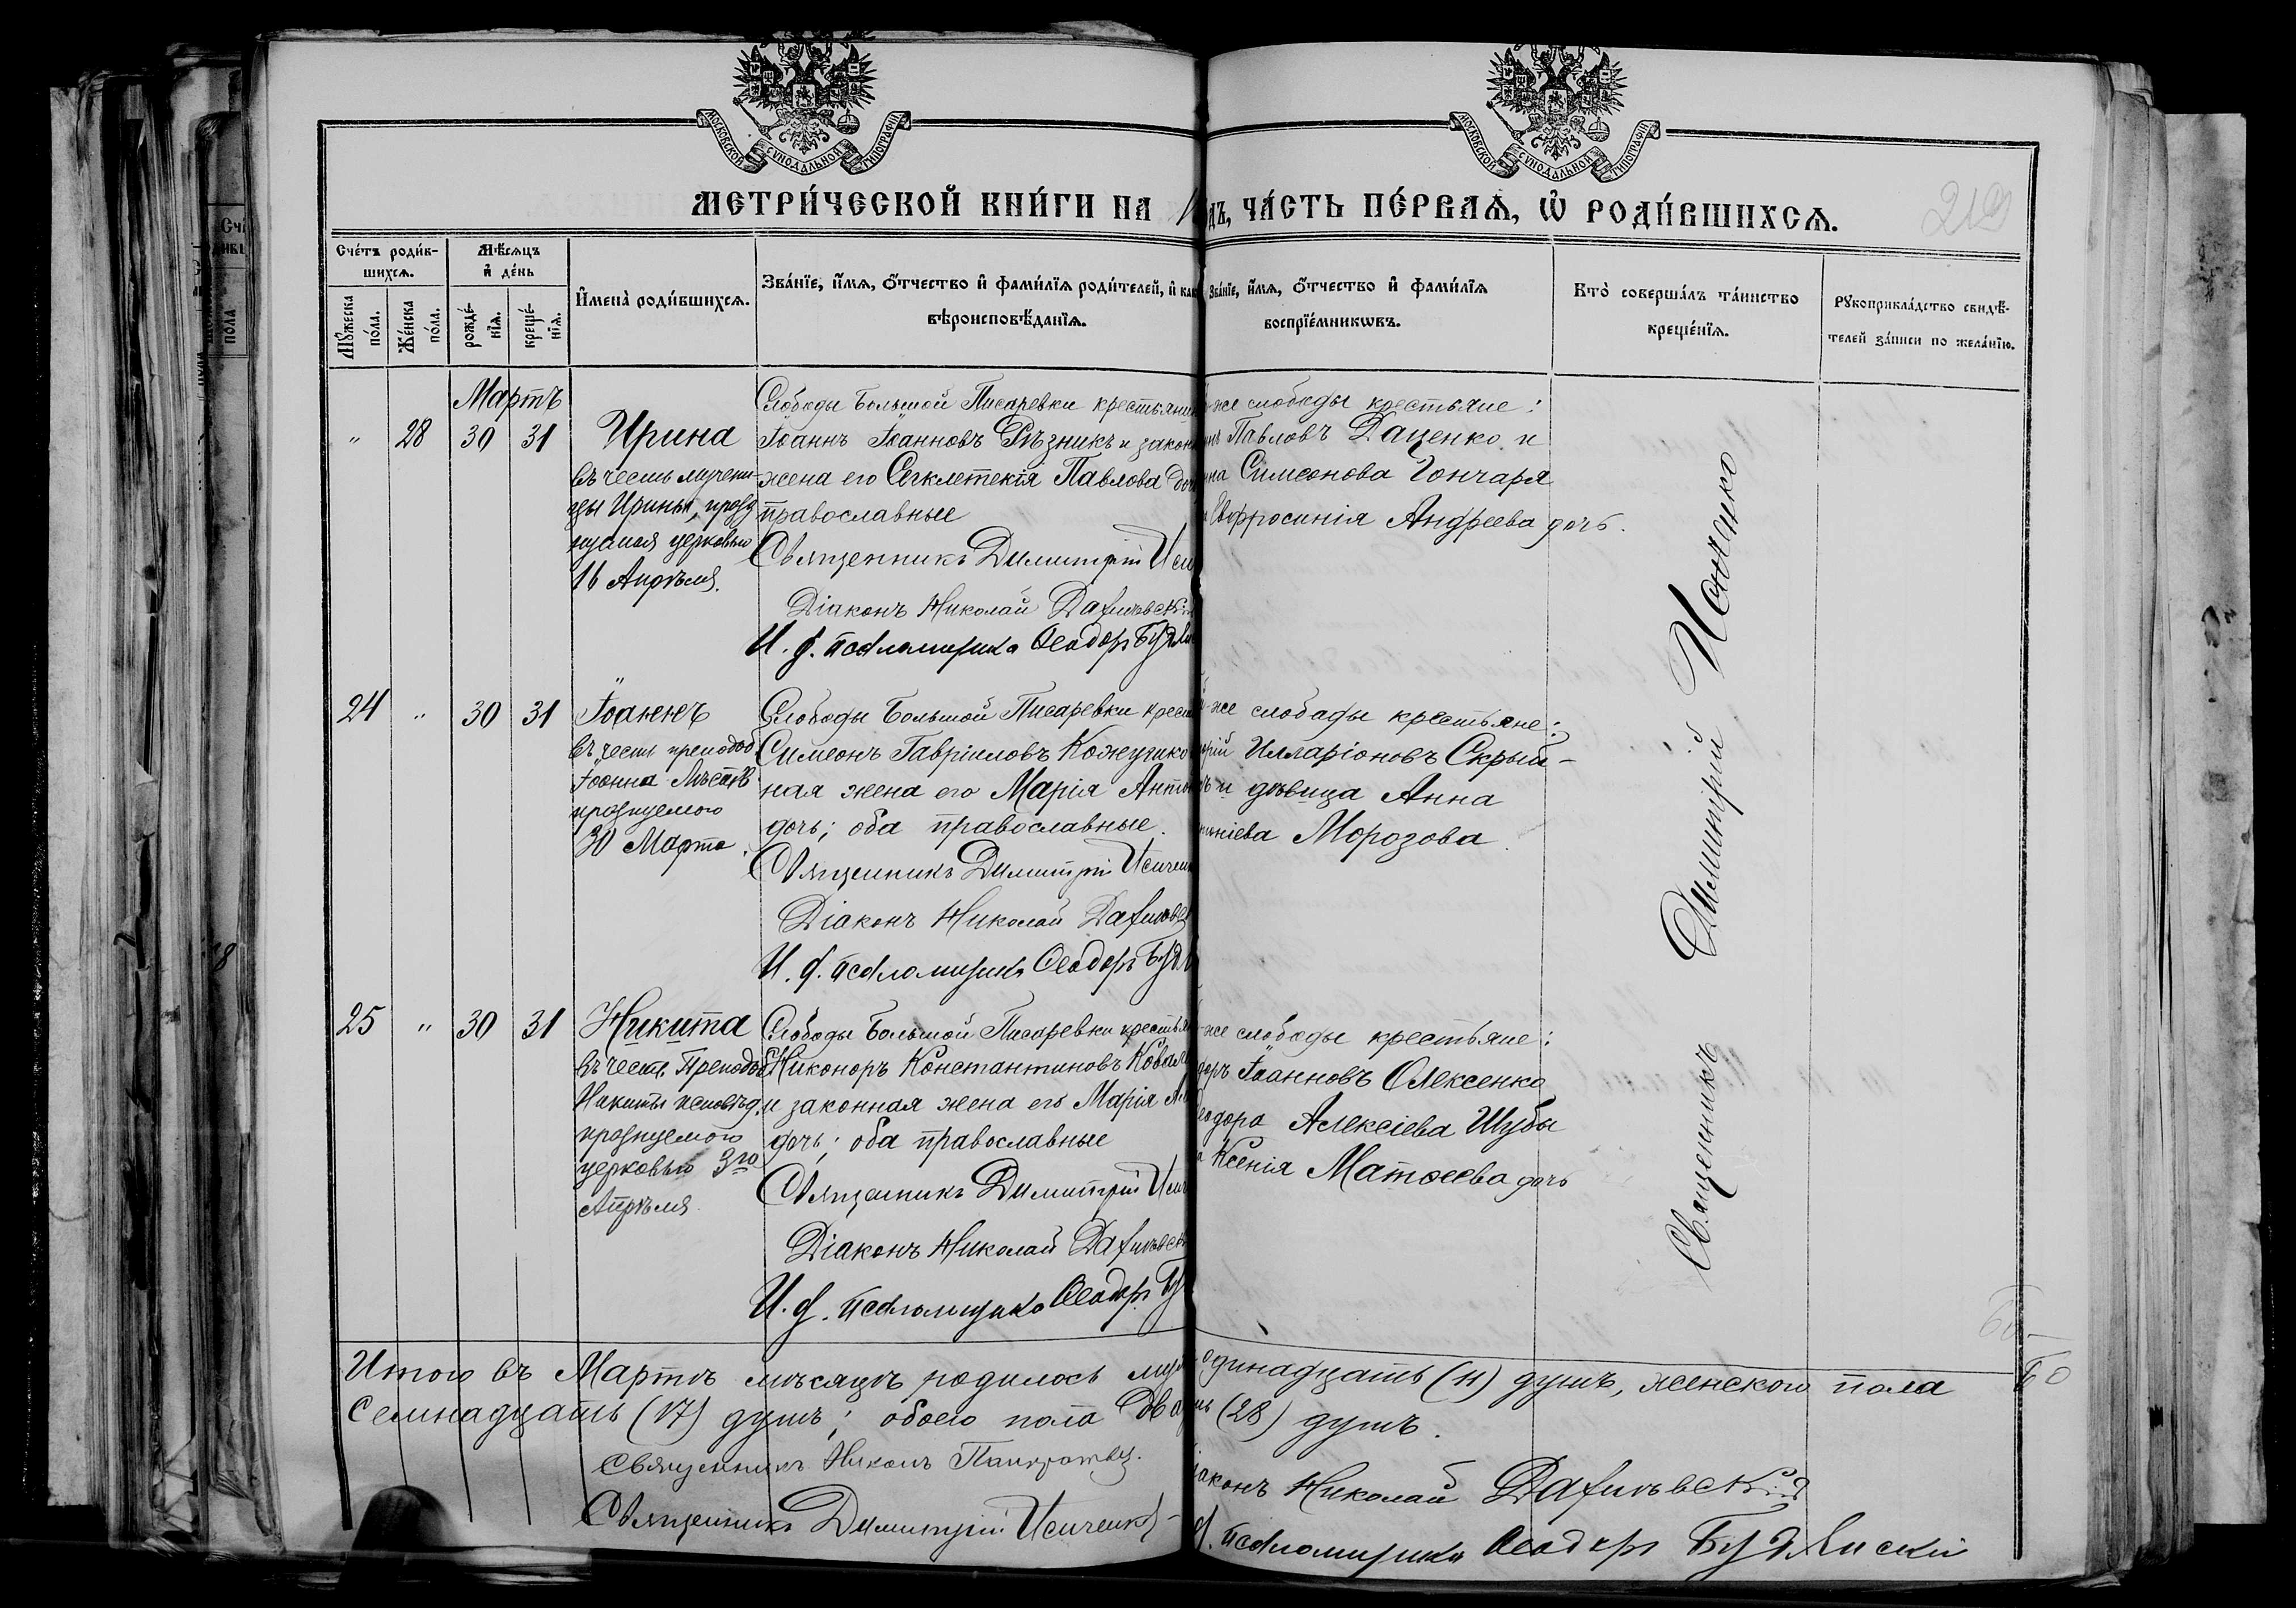 МОСКОВСКОЙ СѴНОДАЛЬНОЙ ТИПОГРАФІИ
МОСКОВСКОЙ СѴНОДАЛЬНОЙ ТИПОГРАФІИ
МЕТРИ́ЧЕСКОЙ КНИ́ГИ НА 1
дъ, ЧА́СТЬ ПЕ́РВАѦ, Ѿ РОДИ́ВШИХСѦ.
219
Сче́тъ роди́в-
шихсѧ.
Мѣ́сѧцъ
и҆ де́нь
И҆мена̀ роди́вшихсѧ.
Зва́нїе, и҆́мѧ, ѻ҆́тчество и҆ фами́лїѧ роди́телей, и҆ как
вѣроисповѣ́данїѧ.
Зва́нїе, и҆́мѧ, ѻ҆́тчество и҆ фами́лїѧ
воспрїе́мникѡвъ.
Кто̀ соверша́лъ та́инство
креще́нїѧ.
Рꙋкоприкла́дство свидѣ́-
телей за́писи по жела́нїю.
Мꙋ́жеска
по́ла.
Же́нска
по́ла.
рожде́-
нїѧ.
креще́-
нїѧ.
Мартъ
" 28 30 31
Ирина
въ честь мучени-
цы Ирины, празд
нуемая церковью
16 Апрѣля.
Слободы Большой Писаревки крестьянин
Іоаннъ Іоанновъ Рѣзникъ и закон
жена его Сегклетекія Павлова доч
православные
Священникъ Димитрій Иси
Діаконъ Николай
И. д. псаломщика Ѳеодоръ Будян
же слободы крестьяне:
нъ Павловъ Даценко и
на Симеонова Гончаря
Евфросинія Андреева дочь.
24 " 30 31
Іоаннъ
въ честь преподоб
Іоанна Лѣств
празнуемого
30 Марта.
Слободы Большой Писаревки крест
Симеонъ Гавріиловъ Кожушко
ная жена его Марія Анто
дочь; оба православные.
Священникъ Димитрій Исичен
Діаконъ Николай
И. д. псаломщика Ѳеодоръ Будя
же слободы крестьяне:
рій Илларіоновъ Скрып-
ъ и дѣвица Анна
ніева Морозова.
25 " 30 31
Никита
въ честь Преподоб
Никиты исповѣд.
празнуемого
церковью 3го
Апрѣля
Слободы Большой Писаревки крестья
Никоноръ Константиновъ Ковал
и законная жена его Марія
дочь; оба православные
Священникъ Димитрій Исич
Діаконъ Николай
И. д. псаломщика Ѳеодоръ Бу
же слободы крестьяне:
доръ Іоанновъ Олексенко
еодора Алексіева Шубы
Ксенія Матѳеева дочь
Священникъ Димитрій Исиченко
60
Итого въ Мартѣ мѣсяцѣ родилось муж
одинадцать (11) душъ, женского пола
Семнадцать (17) душъ; обоего пола два
ть (28) душъ.
Священникъ Никонъ
Священникъ Димитрій Исиченко
іаконъ Николай
д. псаломщика Ѳеодоръ Будянскій